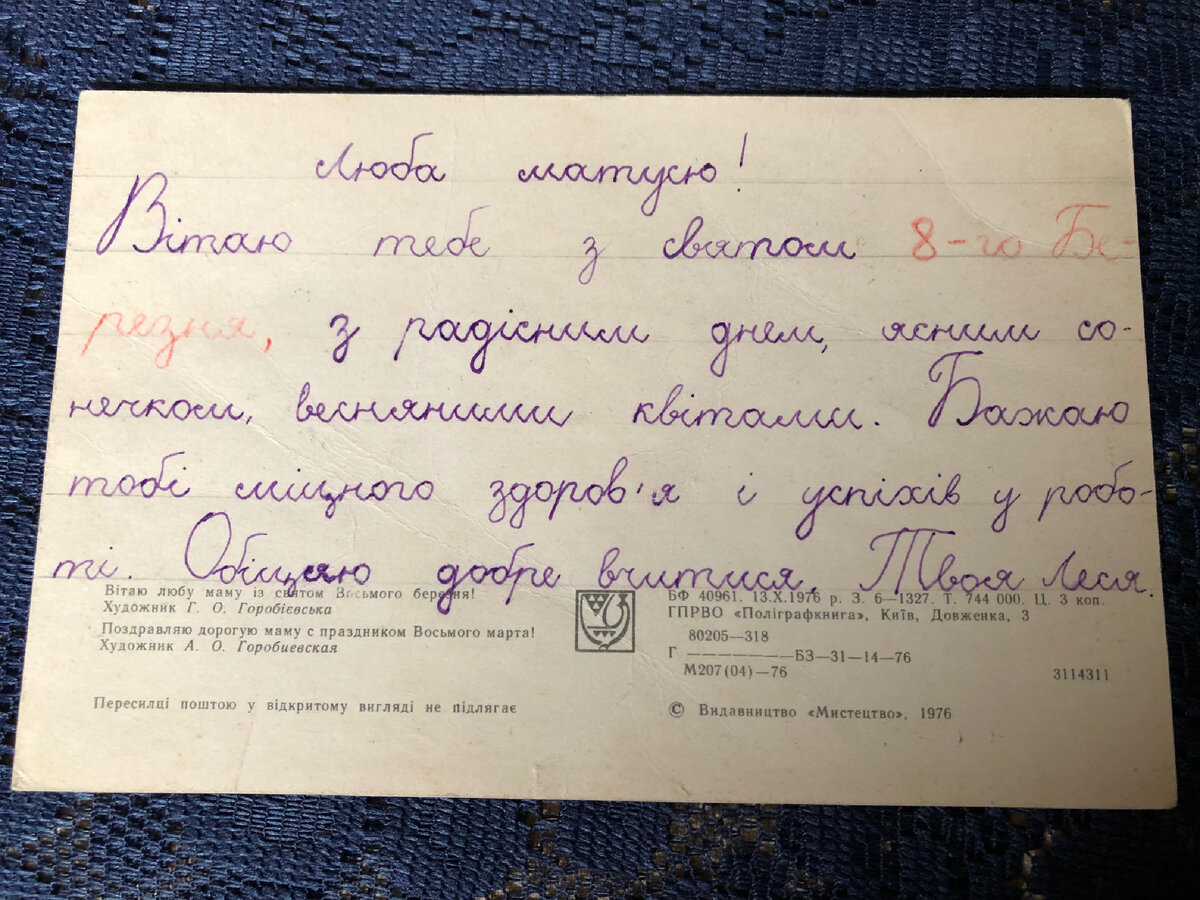 Люба матусю!
Вітаю тебе з святом 8-го Бе-
резня, з радісним днем, ясним со-
нечком, весняними квітами. Бажаю
тобі міцного здоров'я і успіхів у робо-
ті. Обіцяю добре вчитися. Твоя Леся.
Вітаю любу маму із святом Восьмого березня!
Художник Г. О. Горобієвська
Поздравляю дорогую маму с праздником Восьмого марта!
Художник А. О. Горобиевская
Пересилці поштою у відкритому вигляді не підлягає
БФ 40961. 13.X.1976 р. З. 6—1327. Т. 744 000. Ц. 3 коп.
ГПРВО «Поліграфкнига», Київ, Довженка, 3
80205—318
Г ——————— БЗ—31—14—76
М207(04)—76
3114311
© Видавництво «Мистецтво», 1976